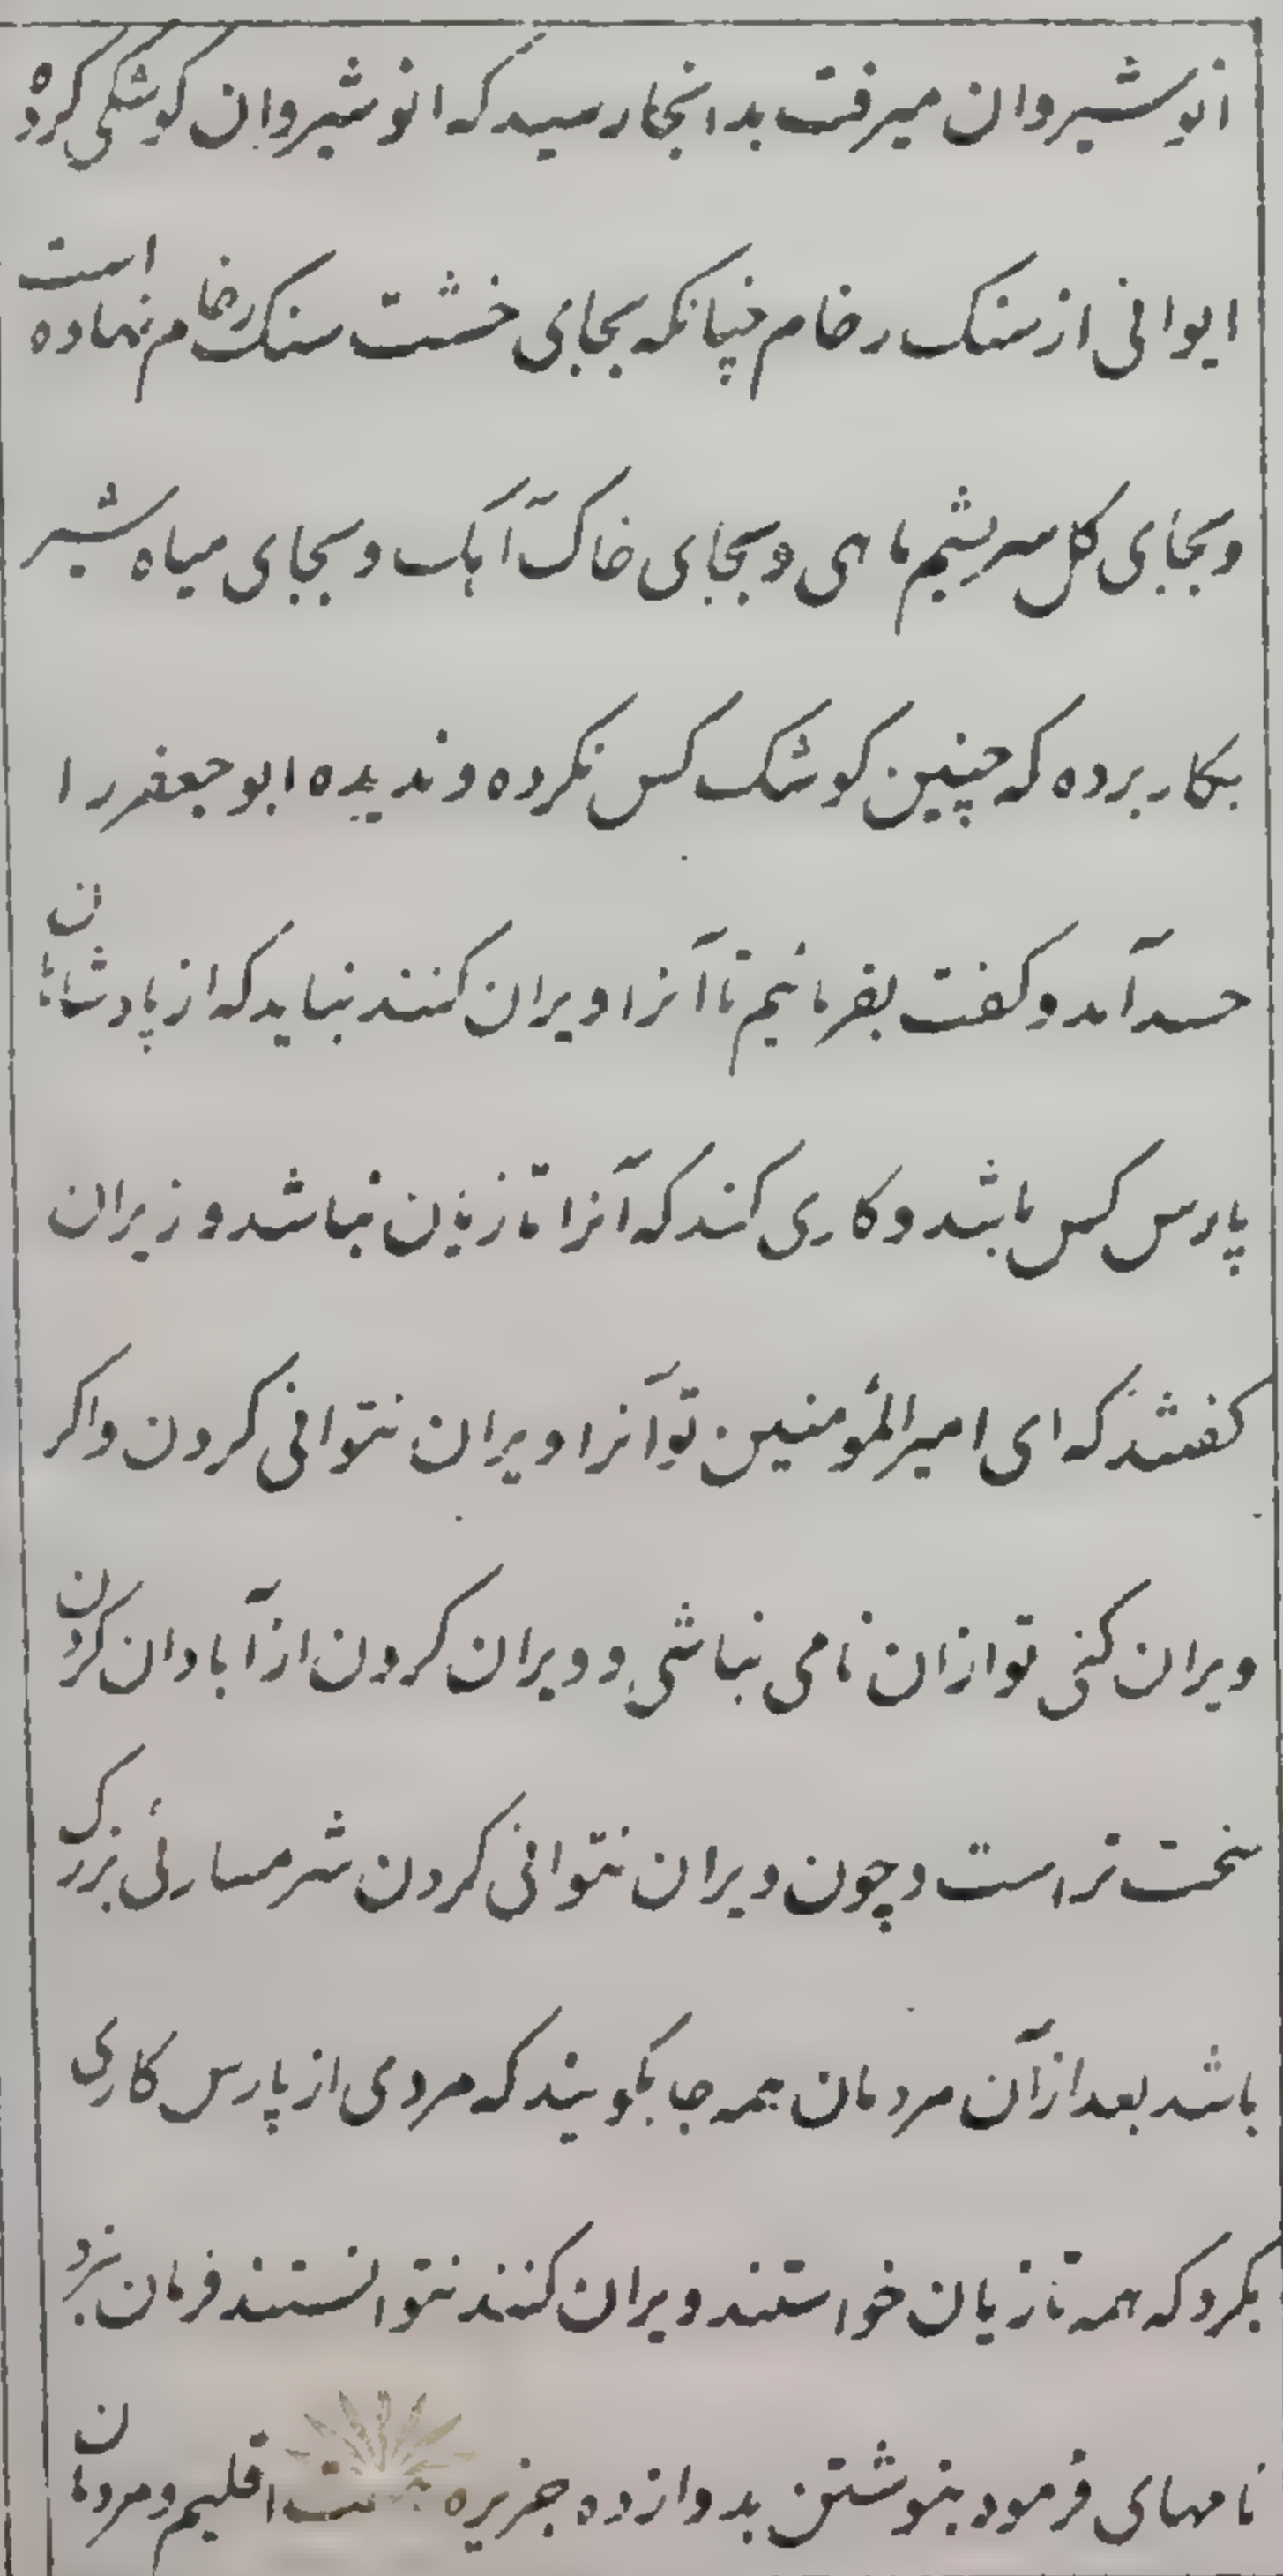 انوشیروان میرفت بدانجا رسید که انوشیروان کوشکی کرده
ایوانی از سنک رخام چنانکه بجای خشت سنک رخام نهاده است
و بجای کل سریشم ماهی و بجای خاک آهک و بجای میاه شیر
بکار برده که چنین کوشک کس نکرده و ندیده ابو جعفر را
حسد آمد و کفت بفرمائیم تا آنرا ویران کنند نباید که از پادشاهان
پارس کس باشد و کاری کند که آنرا تازیان نباشد وزیران
کفتند که ای امیر المؤمنین تو آنرا ویران نتوانی کردن و اکر
ویران کنی تو ازان نامی نباشی و ویران کردن از آبادان کردن
سخت تر است و چون ویران نتوانی کردن شرمسارئی بزرک
باشد بعد از آن مردمان همه جا بکویند که مردمی از پارس کاری
بکرد که همه تازیان خواستند ویران کنند نتوانستند فرمان بزد
نامهای فرمود بنوشتن بدوازده جزیره اقلیم و مردمان